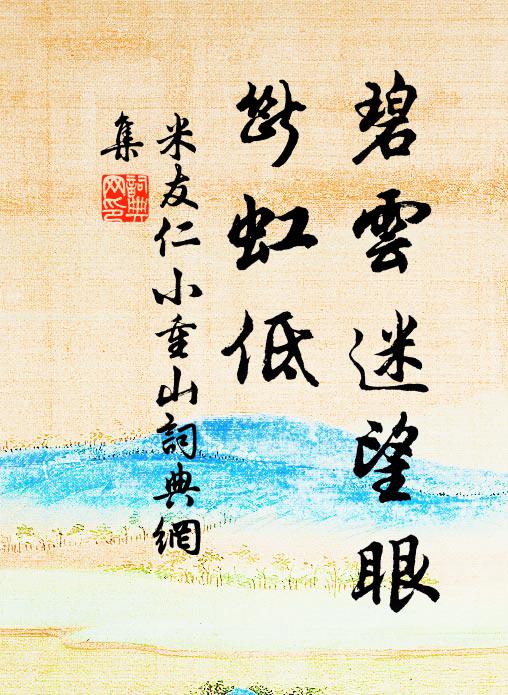 碧雲迷望眼
斷虹低
米友仁小重山詞典網
集
詞典网印